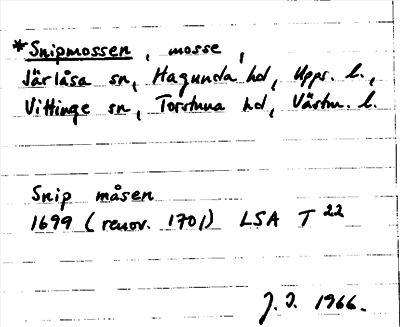 *Snipmossen, mosse,
Järlåsa sn, Hagunda hd, Upps. l.,
Vittinge sn, Torstuna hd, Västm. l.
Snip måsen
1699 (renov. 1701) LSA T 22
J. I. 1966.